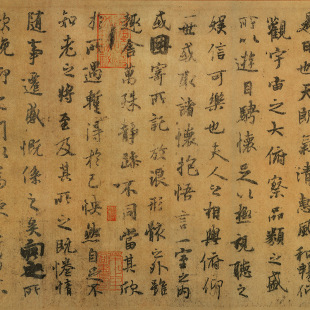 是日也天朗氣清惠風和暢仰
觀宇宙之大俯察品類之盛
所以遊目騁懷足以極視聽之
娛信可樂也夫人之相與俯仰
一世或取諸懷抱悟言一室之內
或因寄所託放浪形骸之外雖
趣舍萬殊靜躁不同當其欣
於所遇暫得於己怏然自足不
知老之將至及其所之既惓情
隨事遷感慨係之矣向之所
欣俛仰之間以為